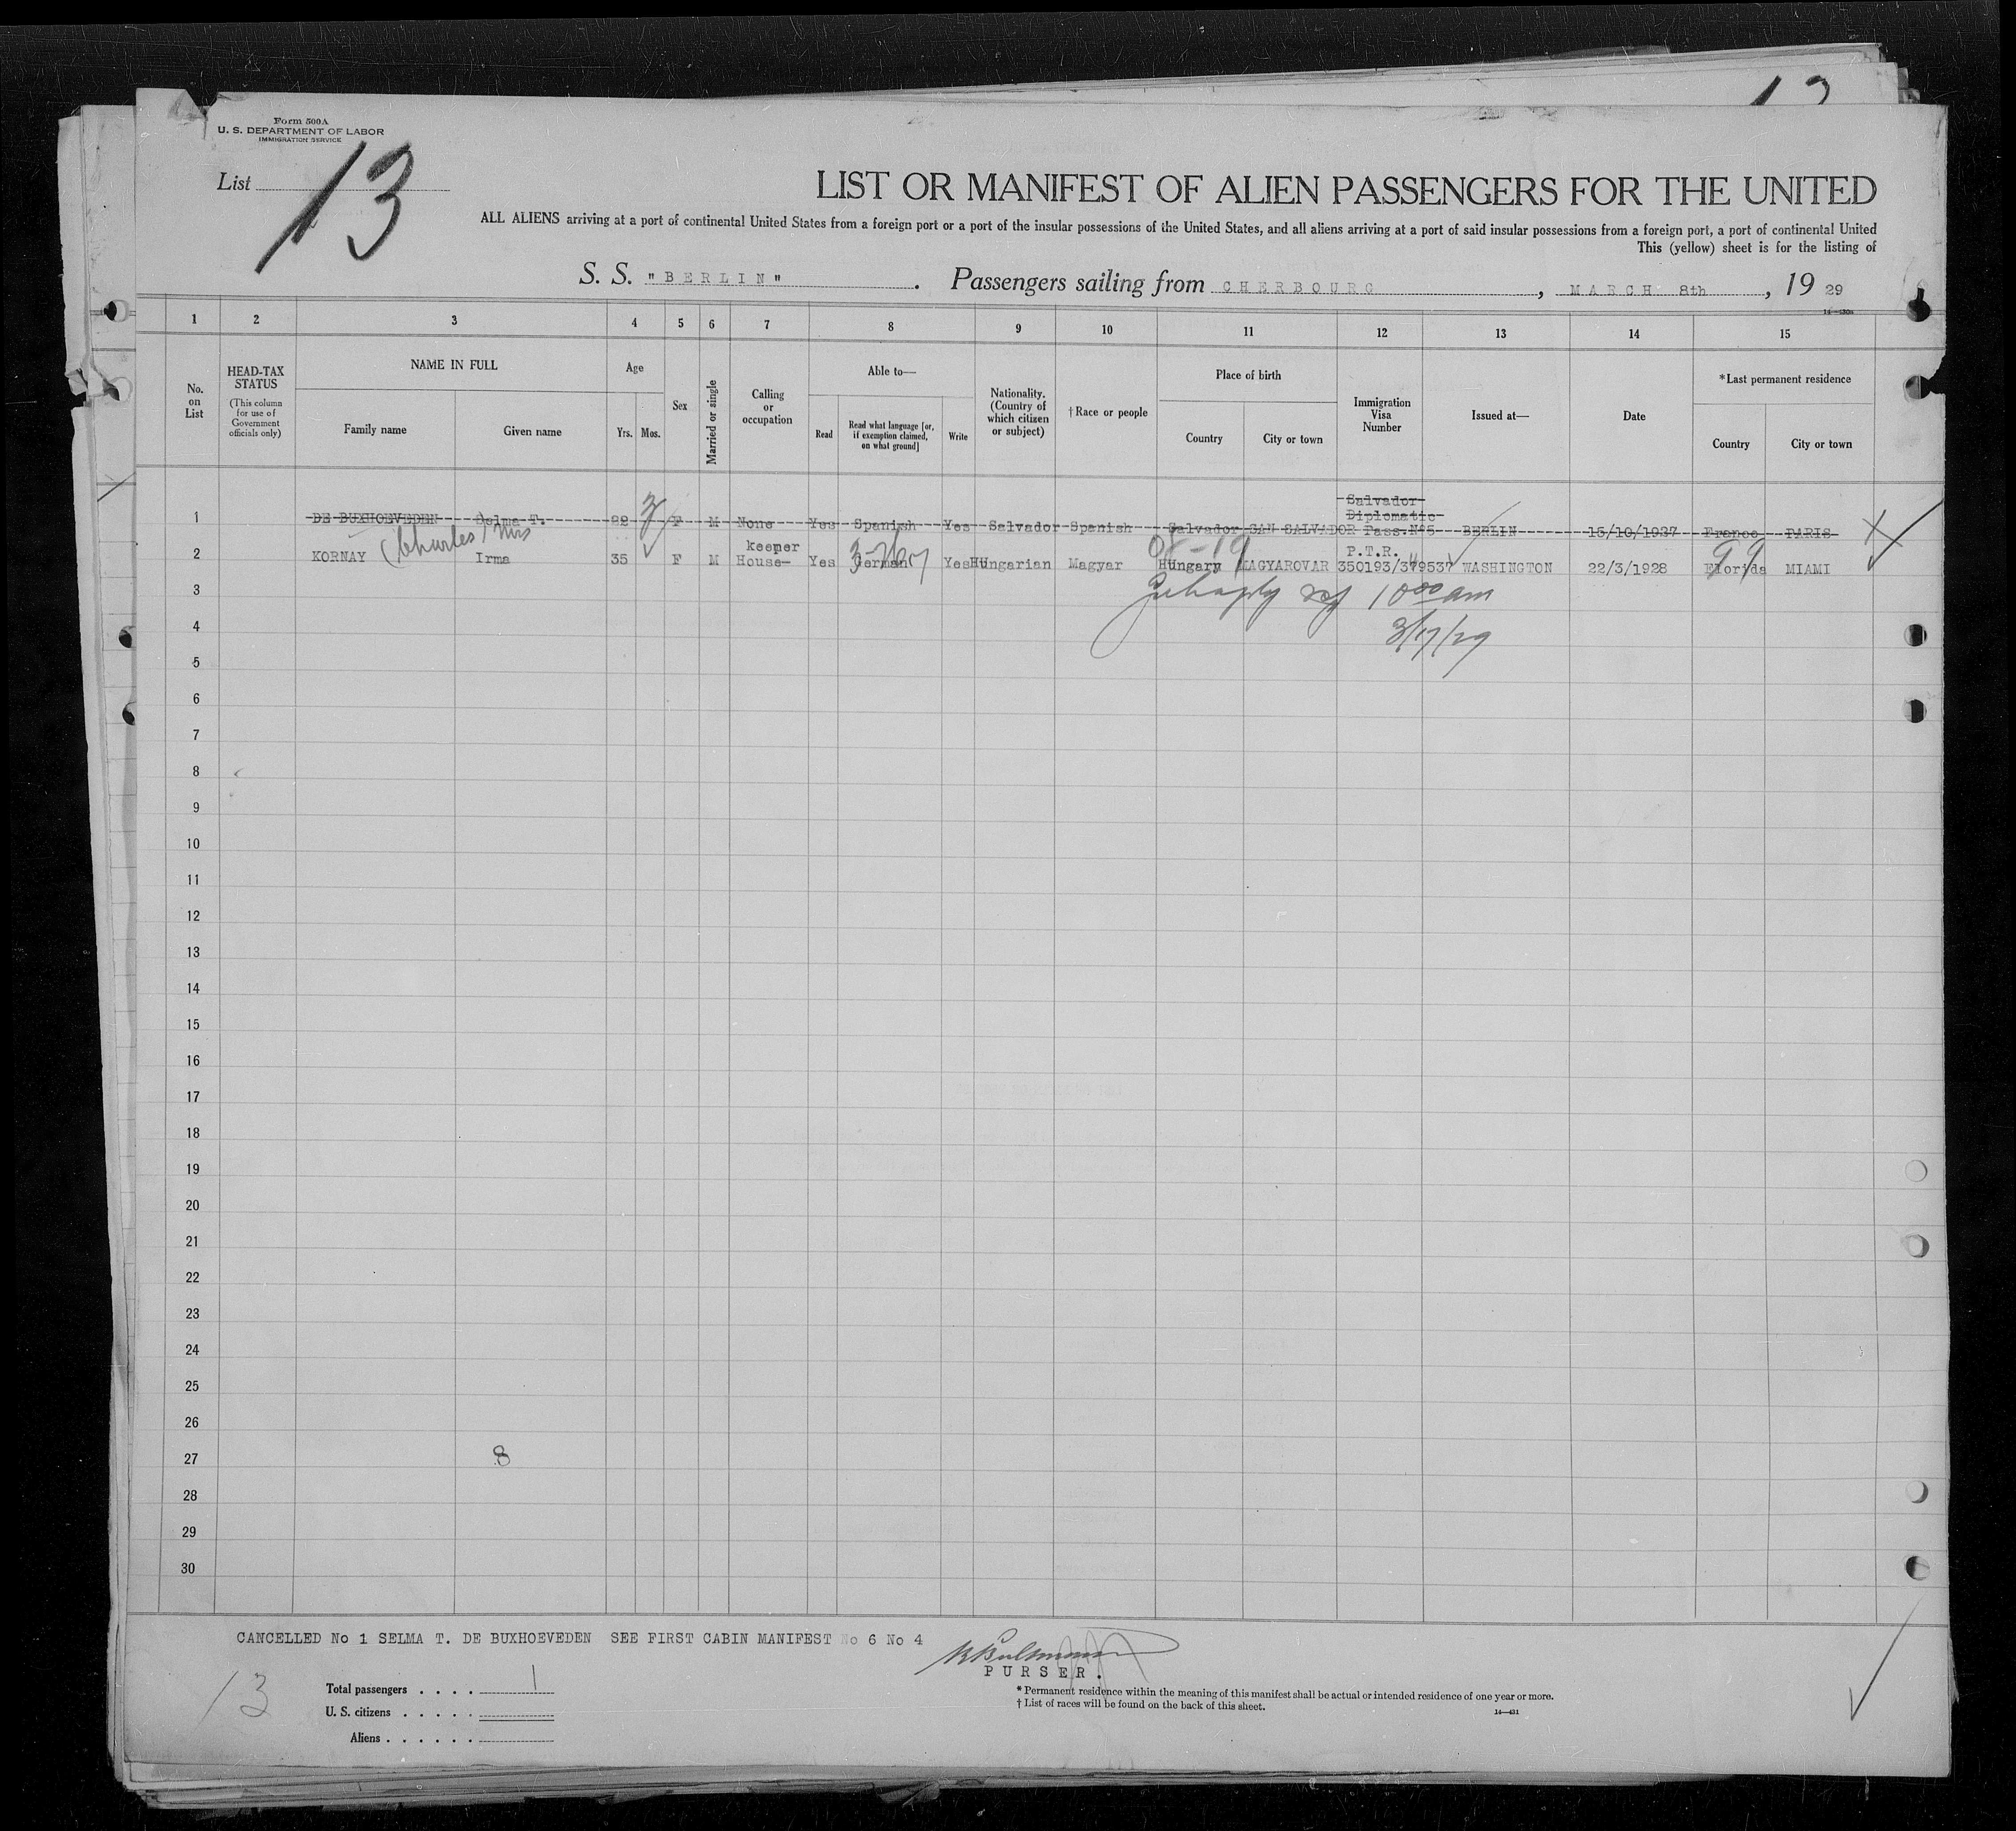 13
Form 500A
U. S. DEPARTMENT OF LABOR
IMMIGRATION SERVICE
List 13
LIST OR MANIFEST OF ALIEN PASSENGERS FOR THE UNITED
ALL ALIENS arriving at a port of continental United States from a foreign port or a port of the insular possessions of the United States, and all aliens arriving at a port of said insular possessions from a foreign port, a port of continental United
This (yellow) sheet is for the listing of
S. S. "BERLIN". Passengers sailing from CHERBOURG, MARCH 8th, 19 29
14—430a
1 2 3 4 5 6 7 8 9 10 11 12 13 14 15
No. on List
HEAD-TAX STATUS
(This column for use of Government officials only)
NAME IN FULL
Family name
Given name
Age
Yrs.
Mos.
Sex
Married or single
Calling or occupation
Able to—
Read
Read what language [or, if exemption claimed, on what ground]
Write
Nationality. (Country of which citizen or subject)
† Race or people
Place of birth
Country
City or town
Immigration Visa Number
Issued at—
Date
*Last permanent residence
Country
City or town
Salvador
Diplomatic
1 DE BUXHOEVEDEN Selma T. 22 F M None Yes Spanish Yes Salvador Spanish Salvador SAN SALVADOR Pass.No5 BERLIN 15/10/1927 France PARIS
(Charles) Mrs
keeper
P.T.R.
2 KORNAY Irma 35 F M House- Yes German Yes Hungarian Magyar Hungary MAGYAROVAR 350193/379537 WASHINGTON 22/3/1928 Florida MIAMI
99
3
10 00 am
4
3/17/29
5
6
7
8
9
10
11
12
13
14
15
16
17
18
19
20
21
22
23
24
25
26
27
8
28
29
30
CANCELLED No 1 SELMA T. DE BUXHOEVEDEN SEE FIRST CABIN MANIFEST No 6 No 4
PURSER.
13
Total passengers . . . . 1
U. S. citizens . . . . .
Aliens . . . . . .
* Permanent residence within the meaning of this manifest shall be actual or intended residence of one year or more.
† List of races will be found on the back of this sheet.
14—431